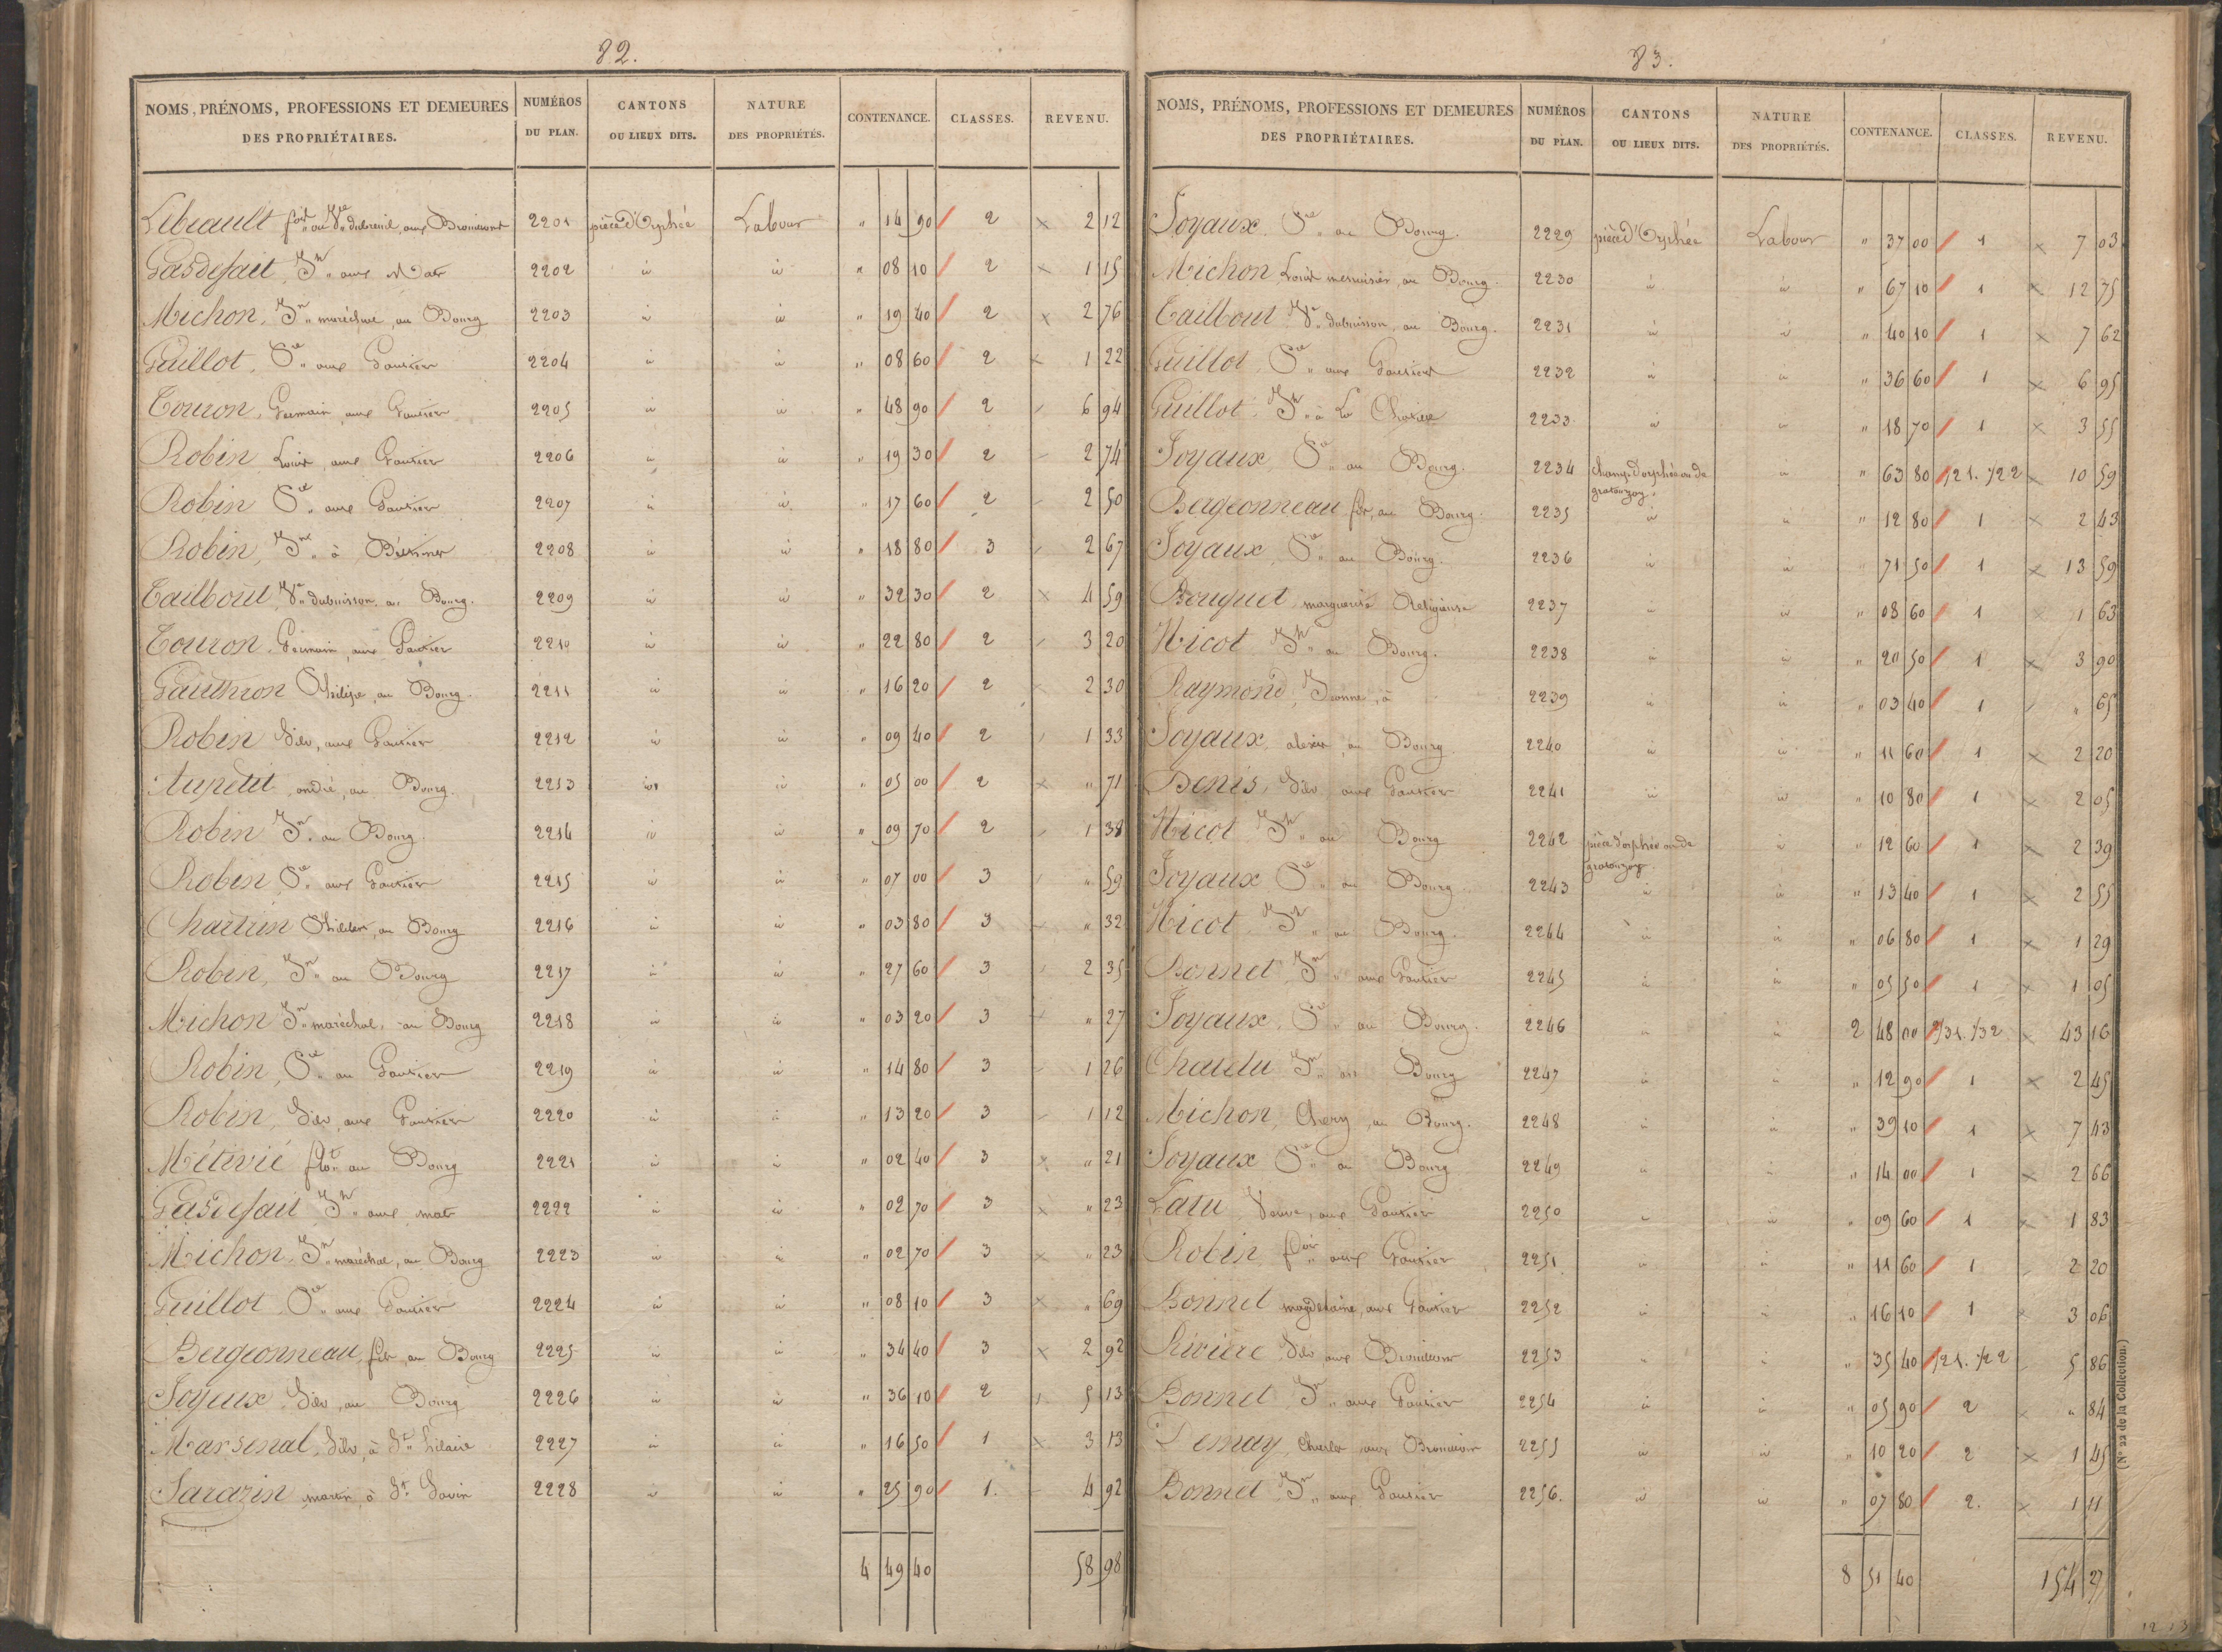 82.
NOMS, PRÉNOMS, PROFESSIONS ET DEMEURES DES PROPRIÉTAIRES. NUMÉROS DU PLAN. CANTONS OU LIEUX DITS. NATURE DES PROPRIÉTÉS. CONTENANCE. CLASSES. REVENU.
2201 pièce d'Orphée Labour " 14 90 2 2 12
2202 id id " 08 10 2 1 15
Michon, Jn maréchal, au Bourg 2203 id id " 19 40 2 2 76
Guillot, Sre aux Gautier 2204 id id " 08 60 2 1 22
Touron, Germain, aux Gautier 2205 id id " 48 90 2 6 94
Robin Louis, aux Gautier 2206 id id " 19 30 2 2 74
Robin Sre aux Gautier 2207 id id " 17 60 2 2 50
Robin, Jn à 2208 id id " 18 80 3 2 67
Tailbout, Ve dubuisson, au Bourg. 2209 id id " 32 30 2 4 59
Touron, Germain, aux Gautier 2210 id id " 22 80 2 3 20
Gauthron Philipe, au Bourg. 2211 id id " 16 20 2 2 30
Robin Silv, aux Gautier 2212 id id " 09 40 2 1 33
Aupetit, andré, au Bourg. 2213 id id " 05 00 2 " 71
Robin Jn. au Bourg. 2214 id id " 09 70 2 1 38
Robin Sre. aux Gautier 2215 id id " 07 00 3 " 59
au Bourg 2216 id id " 03 80 3 " 32
Robin, Jn au Bourg 2217 id id " 27 60 3 2 35
Michon Jn maréchal, au Bourg 2218 id id " 03 20 3 " 27
Robin, Sre au Gautier 2219 id id " 14 80 3 1 26
Robin, Silv, aux Gautier 2220 id id " 13 20 3 1 12
Métivié au Bourg 2221 id id " 02 40 3 " 21
2222 id id " 02 70 3 " 23
Michon, Jn maréchal, au Bourg 2223 id id " 02 70 3 " 23
Guillot Sre aux Gautier 2224 id id " 08 10 3 " 69
Bergeonneau, au Bourg 2225 id id " 34 40 3 2 92
Joyeux, Silv, au Bourg 2226 id id " 36 10 2 5 13
Marsenat, Silv, à St hilaire 2227 id id " 16 50 1 3 13
Sarazin martin, à St. Savin 2228 id id " 25 90 1. 4 92
4 49 40 58 98
83.
NOMS, PRÉNOMS, PROFESSIONS ET DEMEURES DES PROPRIÉTAIRES. NUMÉROS DU PLAN. CANTONS OU LIEUX DITS. NATURE DES PROPRIÉTÉS. CONTENANCE. CLASSES. REVENU.
Joyaux. Sre au Bourg. 2229 pièce d'Orphée Labour " 37 00 1 7 03
Michon Louis menuisier, au Bourg. 2230 id id " 67 10 1 12 75
Tailbout Ve dubuisson, au Bourg. 2231 id id " 40 10 1 7 62
Guillot, Sre aux Gautier 2232 id id " 36 60 1 6 95
Guillot. 2233 id id " 18 70 1 3 55
Joyaux, Sre au Bourg. 2234 champ d'orphée ou de gratouzay. id " 63 80 1/2 1. 1/2 2 10 59
Bergeonneau au Bourg. 2235 id id " 12 80 1 2 43
Joyaux, Sre au Bourg. 2236 id id " 71 50 1 13 59
Bouquet, marguerite Religieuse 2237 id id " 08 60 1 1 63
Nicot Jh au Bourg. 2238 id id " 20 50 1 3 90
Raymond, à 2239 id id " 03 40 1 " 65
Joyaux, alexis, au Bourg 2240 id id " 11 60 1 2 20
Denis, Silv aux Gautier 2241 id id " 10 80 1 2 05
Nicot Jh au Bourg 2242 pièce d'orphée ou de gratouzay id " 12 60 1 2 39
Joyaux Sre au Bourg 2243 id id " 13 40 1 2 55
Nicot. Jh au Bourg. 2244 id id " 06 80 1 1 29
Bonnet Jn aux Gautier 2245 id id " 05 50 1 1 05
Joyaux. Sre au Bourg. 2246 id id 2 48 00 2/3 1. 1/3 2 43 16
Jn au Bourg 2247 id id " 12 90 1 2 45
Michon, Chery, au Bourg. 2248 id id " 39 10 1 7 43
Joyaux Sre au Bourg 2249 id id " 14 00 1 2 66
Latu Veuve, aux Gautier 2250 id id " 09 60 1 1 83
Robin aux Gautier 2251 id id " 11 60 1 2 20
Bonnet magdelaine, aux Gautier 2252 id id " 16 10 1 3 06
Rivière Silv aux 2253 id id " 35 40 1/2 1. 1/2 2 5 86
Bonnet Jn aux Gautier 2254 id id " 05 90 2 " 84
Demay, Charles aux 2255 id id " 10 20 2 1 45
Bonnet Jn aux Gautier 2256. id id " 07 80 2. 1 11
8 51 40 154 27
(N° 22 de la Collection.)